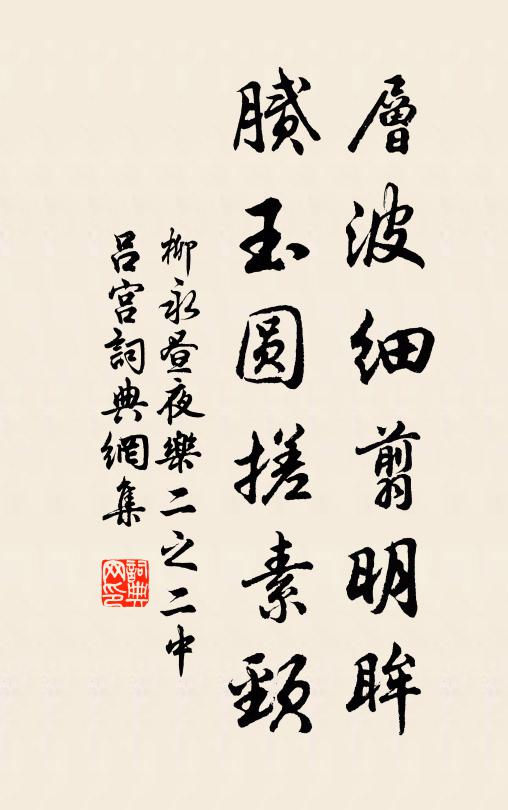 層波細翦明眸
膩玉圓搓素頸
柳永晝夜樂二之二中
呂宮詞典網集
詞典
网印